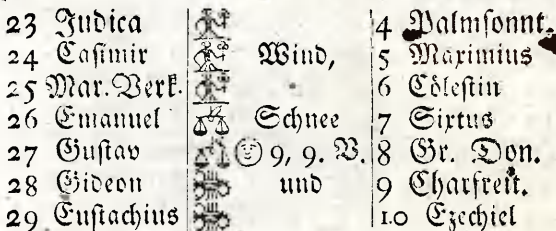 23 Judica 4 Palmſonnt.
24 Caſimir Wind, 5 Maximius
25 Mar. Verk. 6 Cöleſtin
26 Emanuel Schnee 7 Sixtus
27 Guſtav 9, 9. V. 8 Gr. Don.
28 Gideon und 9 Charfreit.
29 Euſtachius 10 Ezechiel